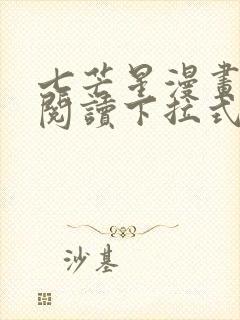 七芒星漫畫
閱讀下拉式
沙基